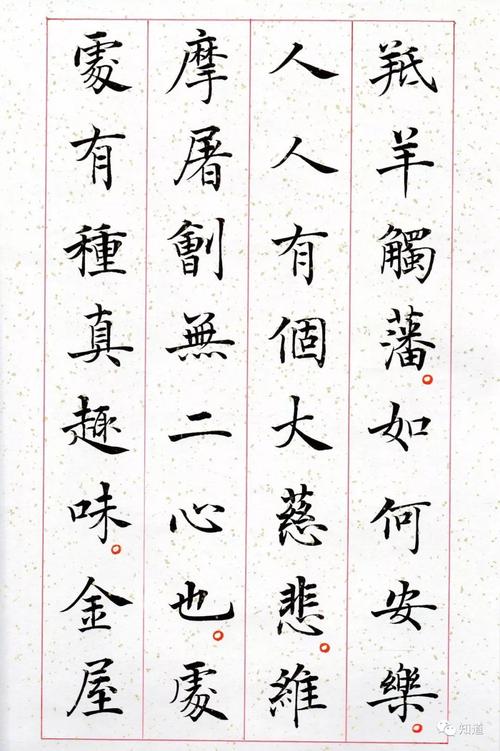 羝羊觸藩如何安樂
人人有個大慈悲維
摩屠劊無二心也處
處有種真趣味金屋
知道